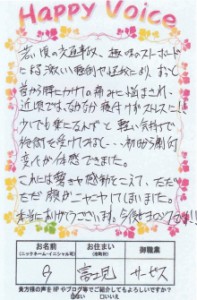 Happy Voice
若い頃の交通事故、趣味のスノーボード
による激しい転倒で
首から肩にかけての痛みに悩まされ、
近頃では、なかなか寝付けず
少しでも楽になればと軽い気持ちで
施術を受けてみると…初回から劇的
変化が体感できました。
これには驚きや感動をこえて、ただ
ただ顔がニヤけてしまいました。
本当にありがとうございます。今後もヨロシクです!!
お名前
(ニックネーム・イニシャル可)
お住まい
(市町村)
御職業
富士見
サービス
貴方様の声をHPやブログ等でご紹介してもよろしいですか?
はい
□いいえ